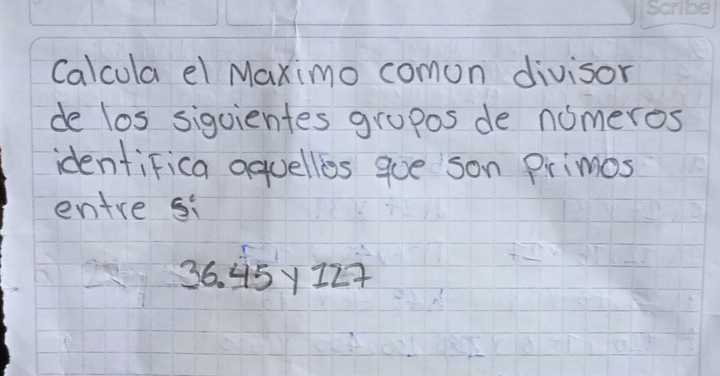 Scribe
Calcula el Maximo comun divisor
de los siguientes grupos de números
identifica aquellos que son Primos
entre sí
36.45 y 127